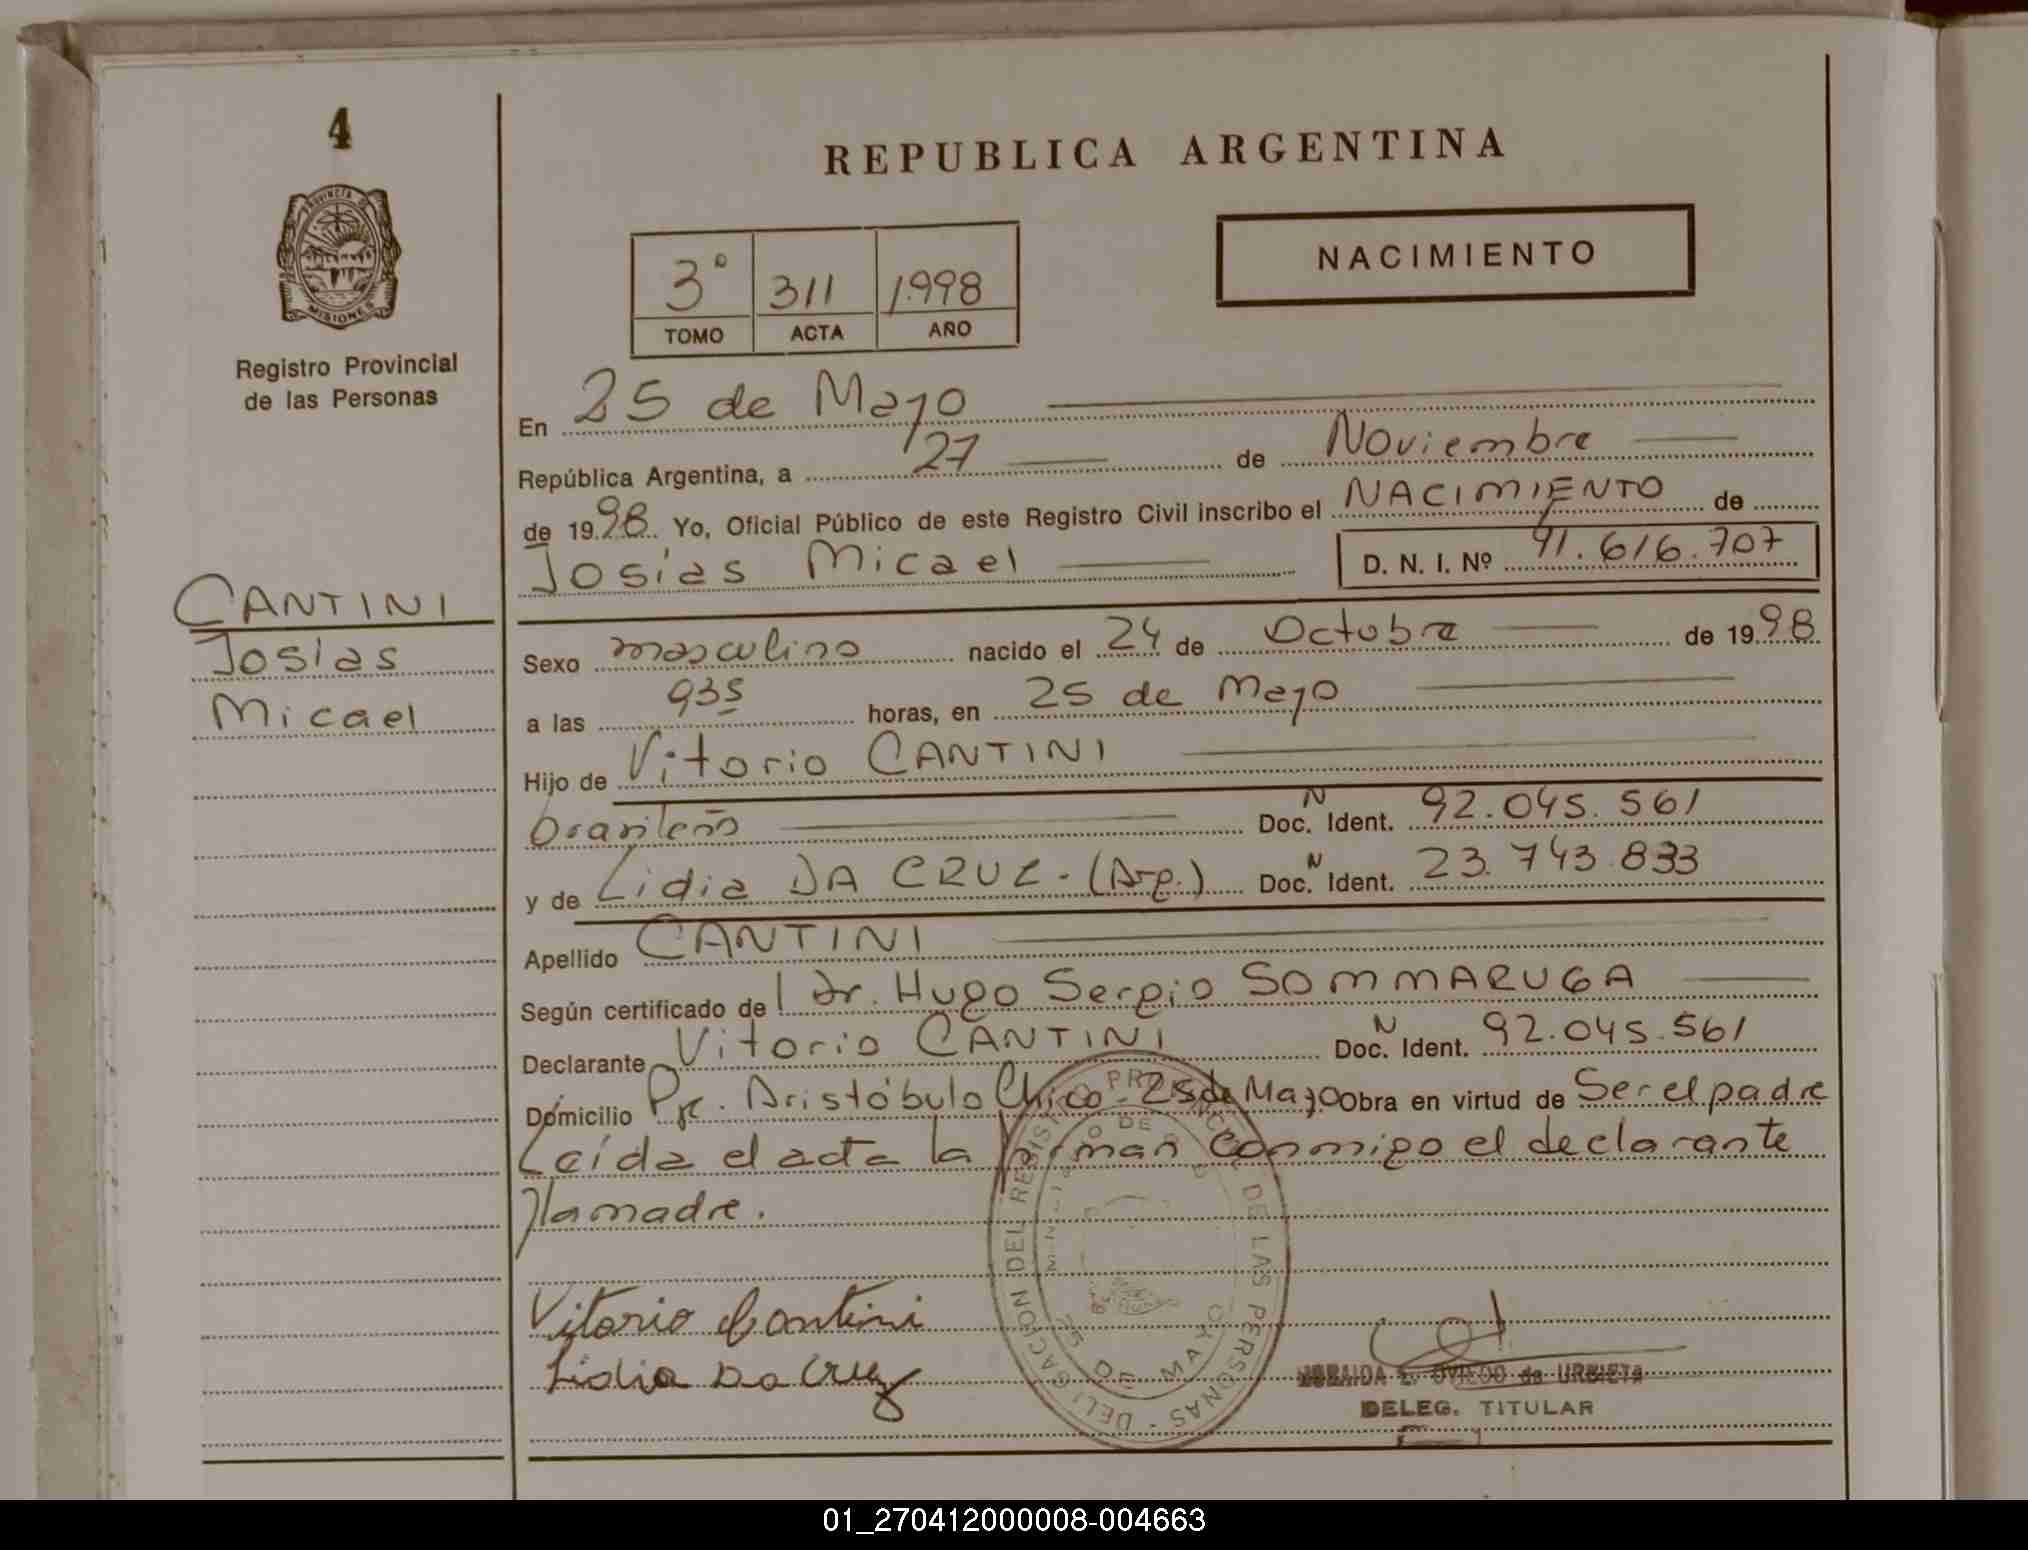 4
PROVINCIA DE
MISIONES
Registro Provincial
de las Personas
CANTINI
Josías
Micael
REPUBLICA ARGENTINA
3° 311 1998
TOMO ACTA AÑO
NACIMIENTO
En 25 de Mayo
República Argentina, a 27 de Noviembre
de 1998 Yo, Oficial Público de este Registro Civil inscribo el NACIMIENTO de
Josías Micael D. N. I. Nº 91.616.707
Sexo masculino nacido el 24 de Octubre de 1998
a las 935 horas, en 25 de Mayo
Hijo de Vitorio CANTINI
brasileño Doc. N Ident. 92.045.561
y de Lidia DA CRUZ - (Arg.) Doc. N Ident. 23.743.833
Apellido CANTINI
Según certificado de l Dr. Hugo Sergio SOMMARUGA
Declarante Vitorio CANTINI Doc. N Ident. 92.045.561
Domicilio Pje. Aristóbulo Chico - 25 de Mayo Obra en virtud de Ser el padre
Leída el acta la firman conmigo el declarante
y la madre.
Vitorio Cantini
Lidia Da Cruz
DELEGACION DEL REGISTRO PROVINCIAL DE LAS PERSONAS
25 DE MAYO
E. OVIEDO de URBIETA
DELEG. TITULAR
01_270412000008-004663